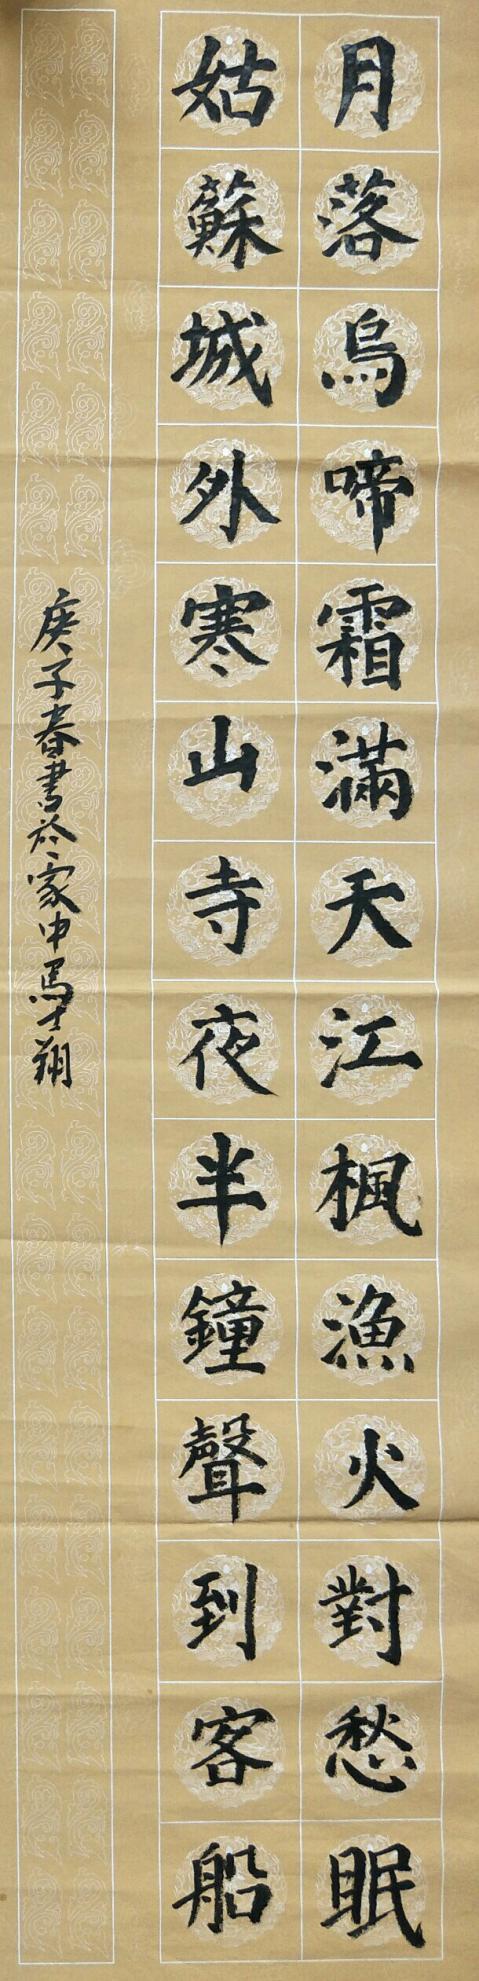 月落烏啼霜滿天江楓漁火對愁眠
姑蘇城外寒山寺夜半鐘聲到客船
庚子春書於家中馬士翔